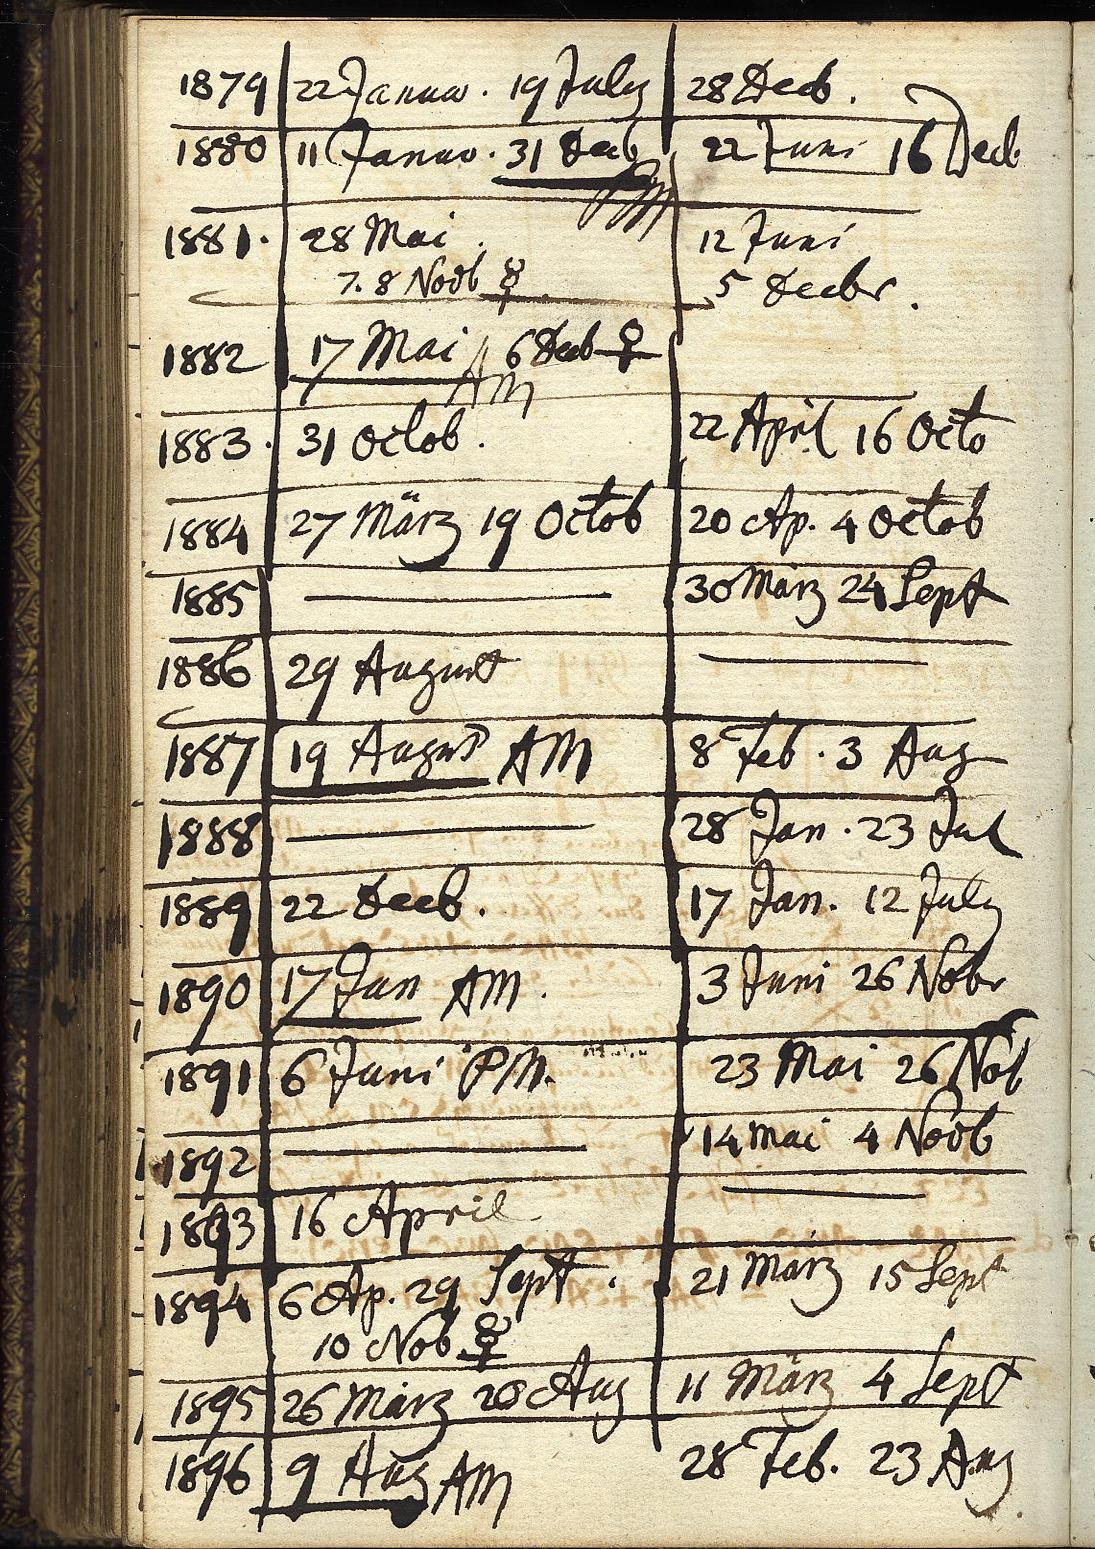 1879 22 Januar. 19 July 28 Decb.
1880 11 Januar. 31 Decb 22 Juni 16 Decb
PM
1881. 28 Mai. 12 Juni
7. 8 Novb ☿ 5 Decbr.
1882 17 Mai 6 Decb ♀
AM
1883. 31 Octob. 22 April 16 Octo
1884 27 März 19 Octob 20 Ap. 4 Octob
1885 — 30 März 24 Sept
1886 29 August —
1887 19 August AM 8 Feb. 3 Aug
1888 — 28 Jan. 23 Jul
1889 22 Decb. 17 Jan. 12 July
1890 17 Jun AM. 3 Juni 26 Nobr
1891 6 Juni PM. 23 Mai 26 Nob
1892 — 14 Mai 4 Novb
1893 16 April —
1894 6 Ap. 29 Sept. 21 März 15 Sept
10 Nob ☿
1895 26 März 20 Aug 11 März 4 Sept
1896 9 Aug AM 28 Feb. 23 Aug.